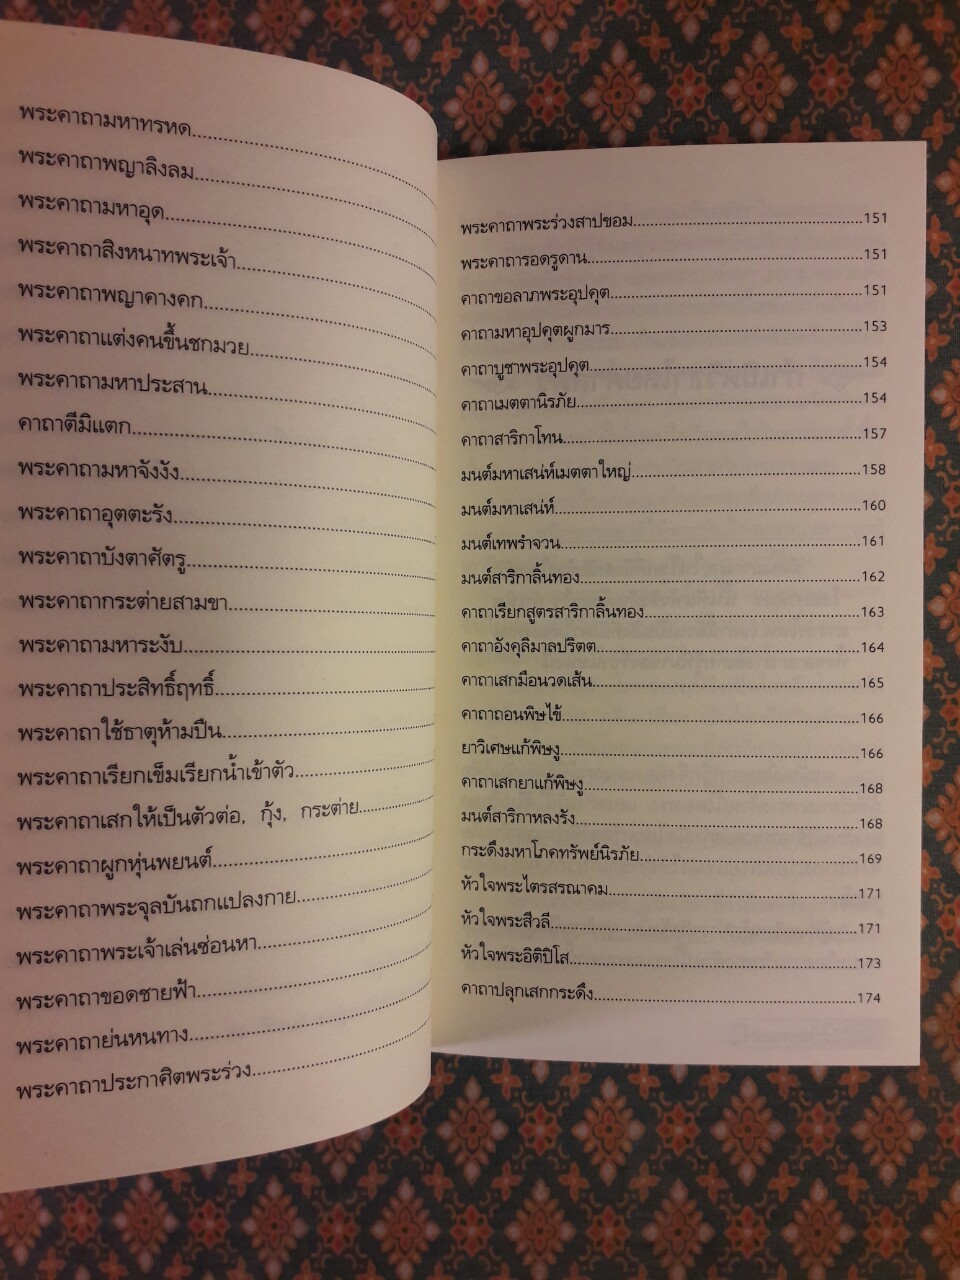 พระคาถามหาทรหด
พระคาถาพญาลิงลม
พระคาถามหาอุด
พระคาถาสิงหนาทพระเจ้า
พระคาถาพญาคางคก
พระคาถาแต่งคนขึ้นชกมวย
พระคาถามหาประสาน
คาถาตีมิแตก
พระคาถามหาจังงัง
พระคาถาอุตตะรัง
พระคาถาบังตาศัตรู
พระคาถากระต่ายสามขา
พระคาถามหาระงับ
พระคาถาประสิทธิ์ฤทธิ์
พระคาถาใช้ธาตุห้ามปืน
พระคาถาเรียกเข็มเรียกน้ำเข้าตัว
พระคาถาเสกให้เป็นตัวต่อ, กุ้ง, กระต่าย
พระคาถาผูกหุ่นพยนต์
พระคาถาพระจุลบันถกแปลงกาย
พระคาถาพระเจ้าเล่นซ่อนหา
พระคาถาขอดชายฟ้า
พระคาถาย่นหนทาง
พระคาถาประกาศิตพระร่วง
พระคาถาพระร่วงสาปขอม 151
พระคาถารอดรูดาน 151
คาถาขอลาภพระอุปคุต 151
คาถามหาอุปคุตผูกมาร 153
คาถาบูชาพระอุปคุต 154
คาถาเมตตานิรภัย 154
คาถาสาริกาโทน 157
มนต์มหาเสน่ห์เมตตาใหญ่ 158
มนต์มหาเสน่ห์ 160
มนต์เทพรำจวน 161
มนต์สาริกาลิ้นทอง 162
คาถาเรียกสูตรสาริกาลิ้นทอง 163
คาถาอังคุลิมาลปริตต 164
คาถาเสกมือนวดเส้น 165
คาถาถอนพิษไข้ 166
ยาวิเศษแก้พิษงู 166
คาถาเสกยาแก้พิษงู 168
มนต์สาริกาหลงรัง 168
กระดึงมหาโภคทรัพย์นิรภัย 169
หัวใจพระไตรสรณาคม 171
หัวใจพระสีวลี 171
หัวใจพระอิติปิโส 173
คาถาปลุกเสกกระดึง 174